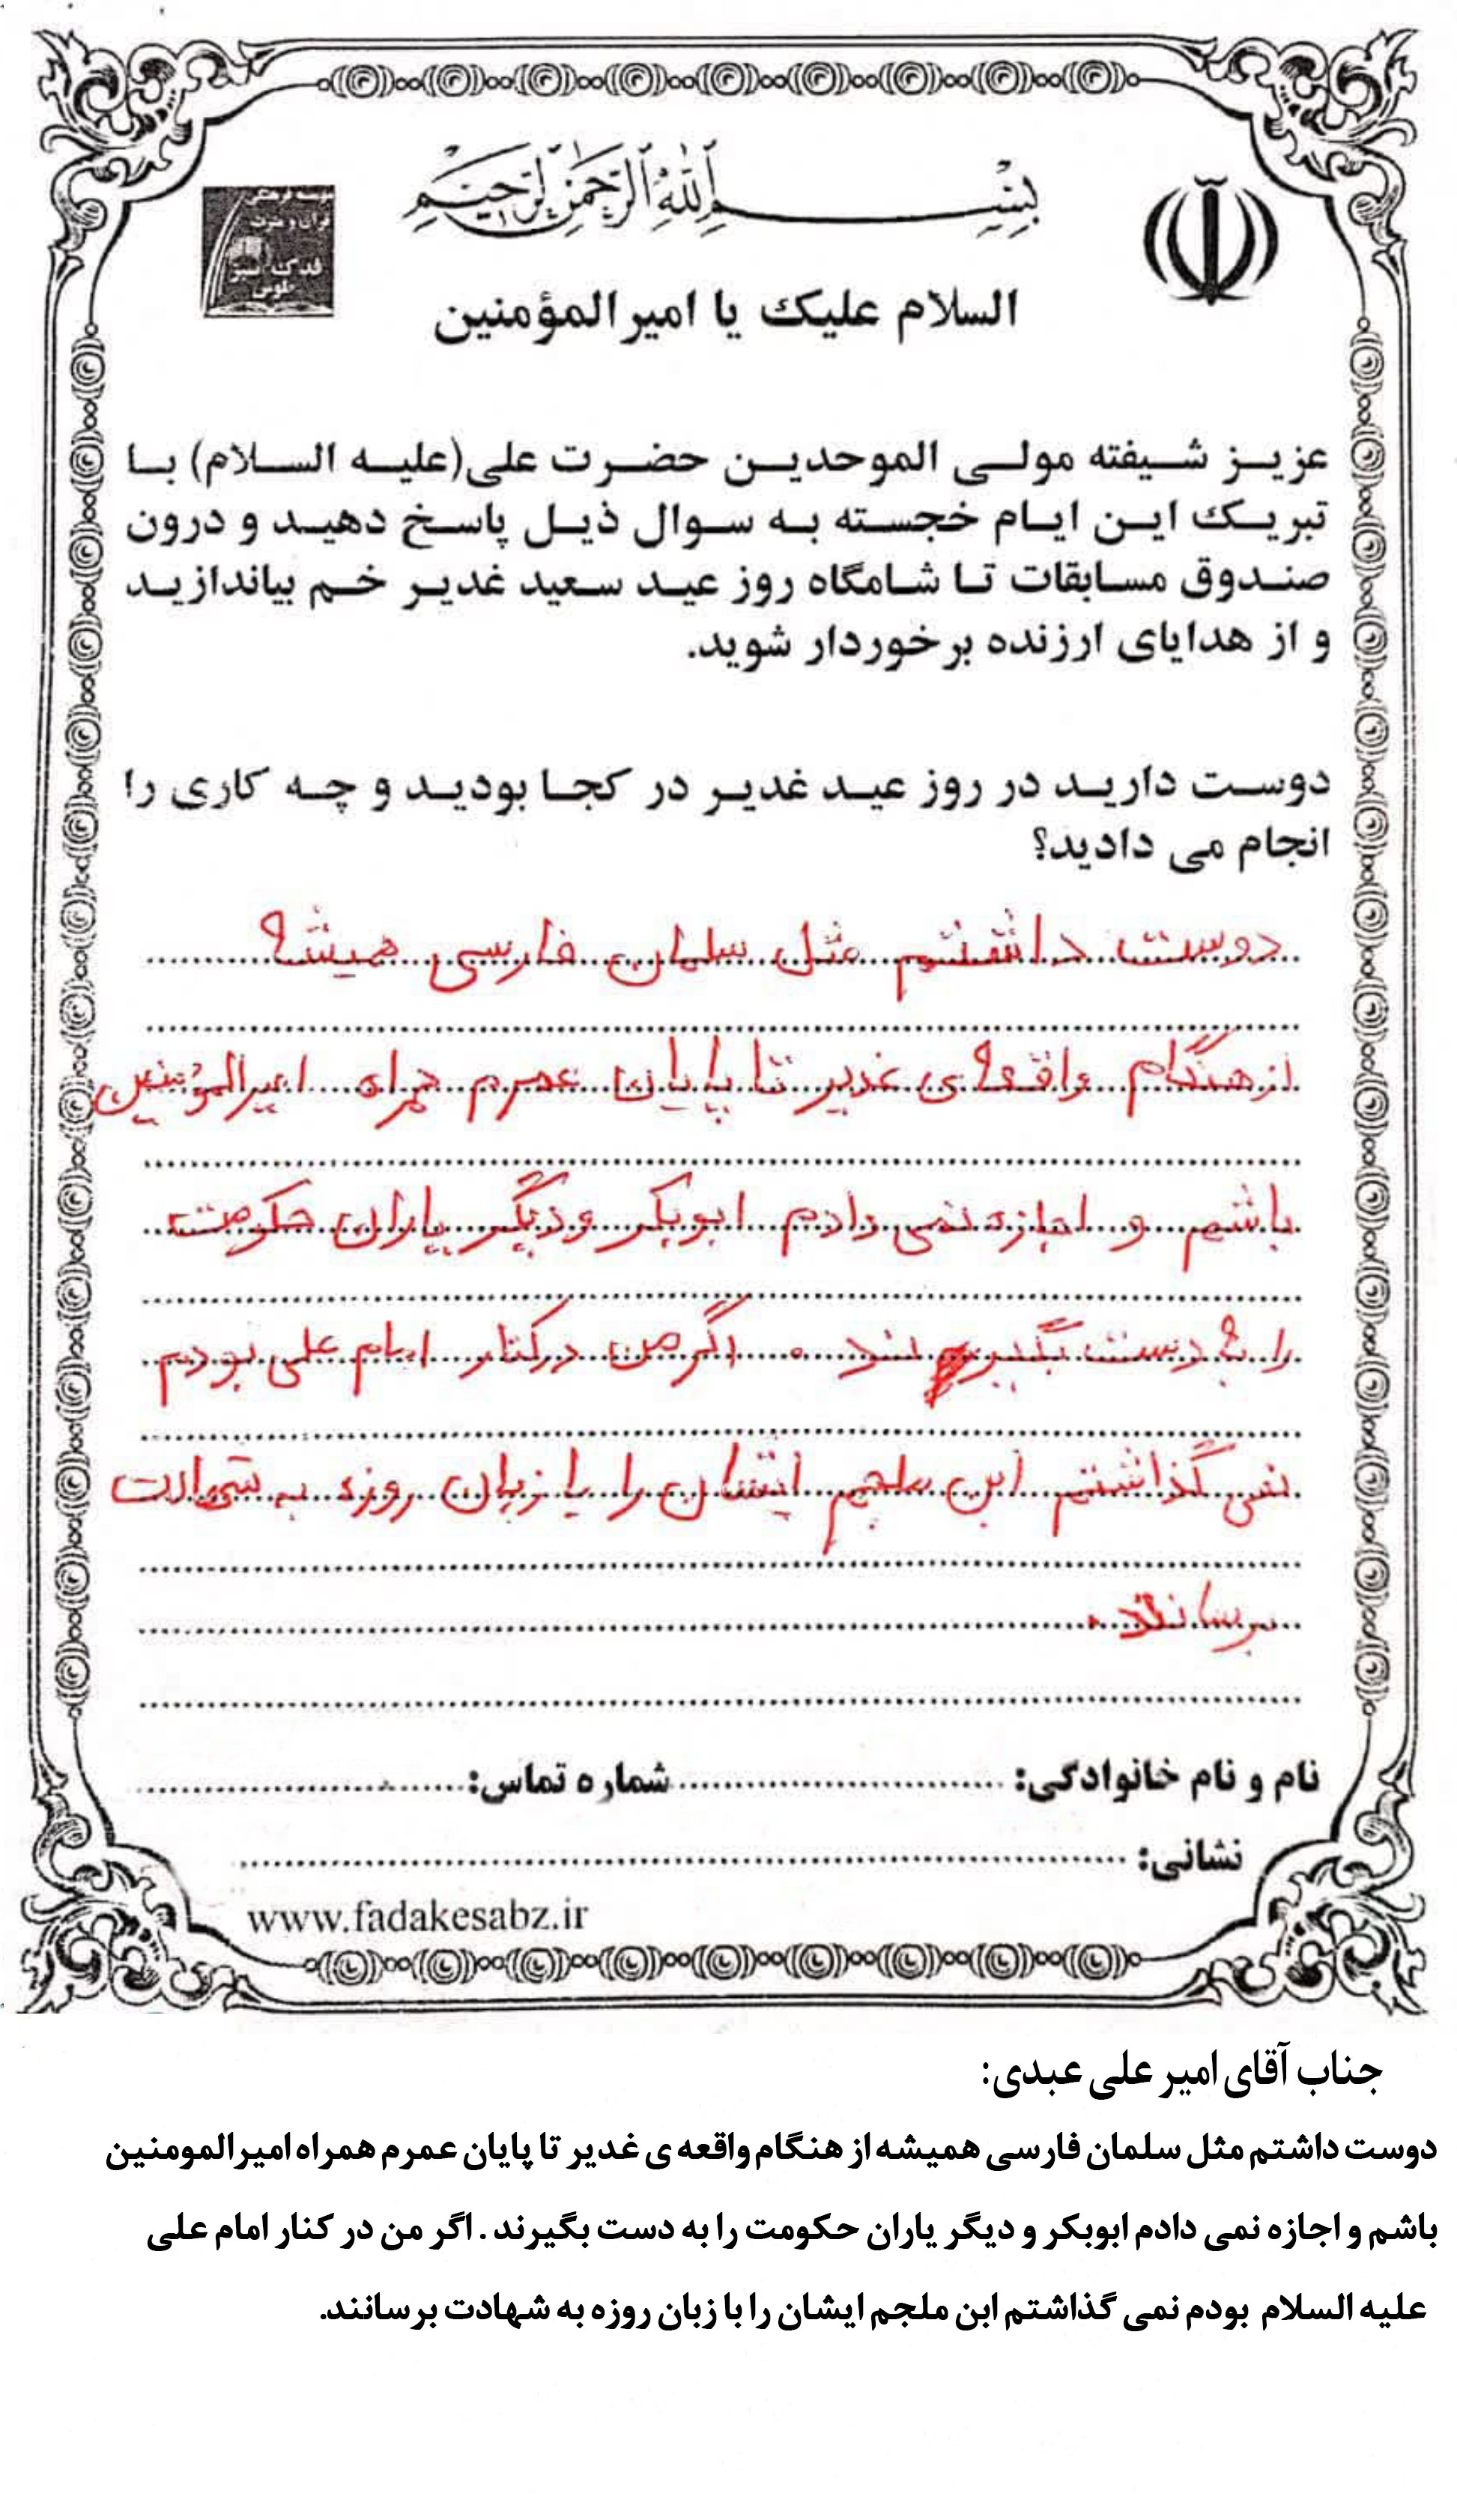 بسم الله الرحمن الرحیم
موسسه فرهنگی
قرآن و عترت
فدک سبز
طوبی
السلام علیک یا امیرالمؤمنین
عزیز شیفته مولی الموحدین حضرت علی(علیه السلام) با
تبریک این ایام خجسته به سوال ذیل پاسخ دهید و درون
صندوق مسابقات تا شامگاه روز عید سعید غدیر خم بیاندازید
و از هدایای ارزنده برخوردار شوید.
دوست دارید در روز عید غدیر در کجا بودید و چه کاری را
انجام می دادید؟
دوست داشتم مثل سلمان فارسی همیشه
از هنگام واقعه ی غدیر تا پایان عمرم همراه امیرالمؤمنین
باشم و اجازه نمی دادم ابوبکر و دیگر یاران حکومت
را به دست بگیرند . اگر من در کنار امام علی بودم
نمی گذاشتم ابن ملجم ایشان را با زبان روزه به شهادت
برسانند.
نام و نام خانوادگی: شماره تماس:
نشانی:
www.fadakesabz.ir
جناب آقای امیر علی عبدی:
دوست داشتم مثل سلمان فارسی همیشه از هنگام واقعه ی غدیر تا پایان عمرم همراه امیرالمومنین
باشم و اجازه نمی دادم ابوبکر و دیگر یاران حکومت را به دست بگیرند . اگر من در کنار امام علی
علیه السلام بودم نمی گذاشتم ابن ملجم ایشان را با زبان روزه به شهادت برسانند.